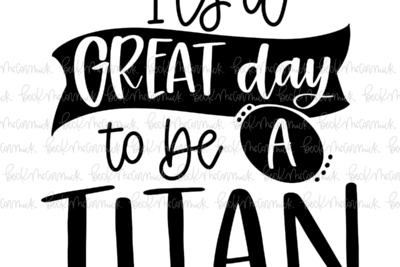 It's a
GREAT day
to be A
TITAN